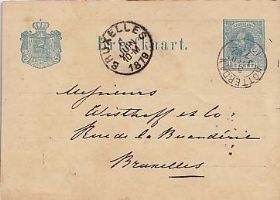 Briefkaart.
BRUXELLES
1879
Messieurs
Westhoff et Co:
Rue de la Buanderie
Bruxelles